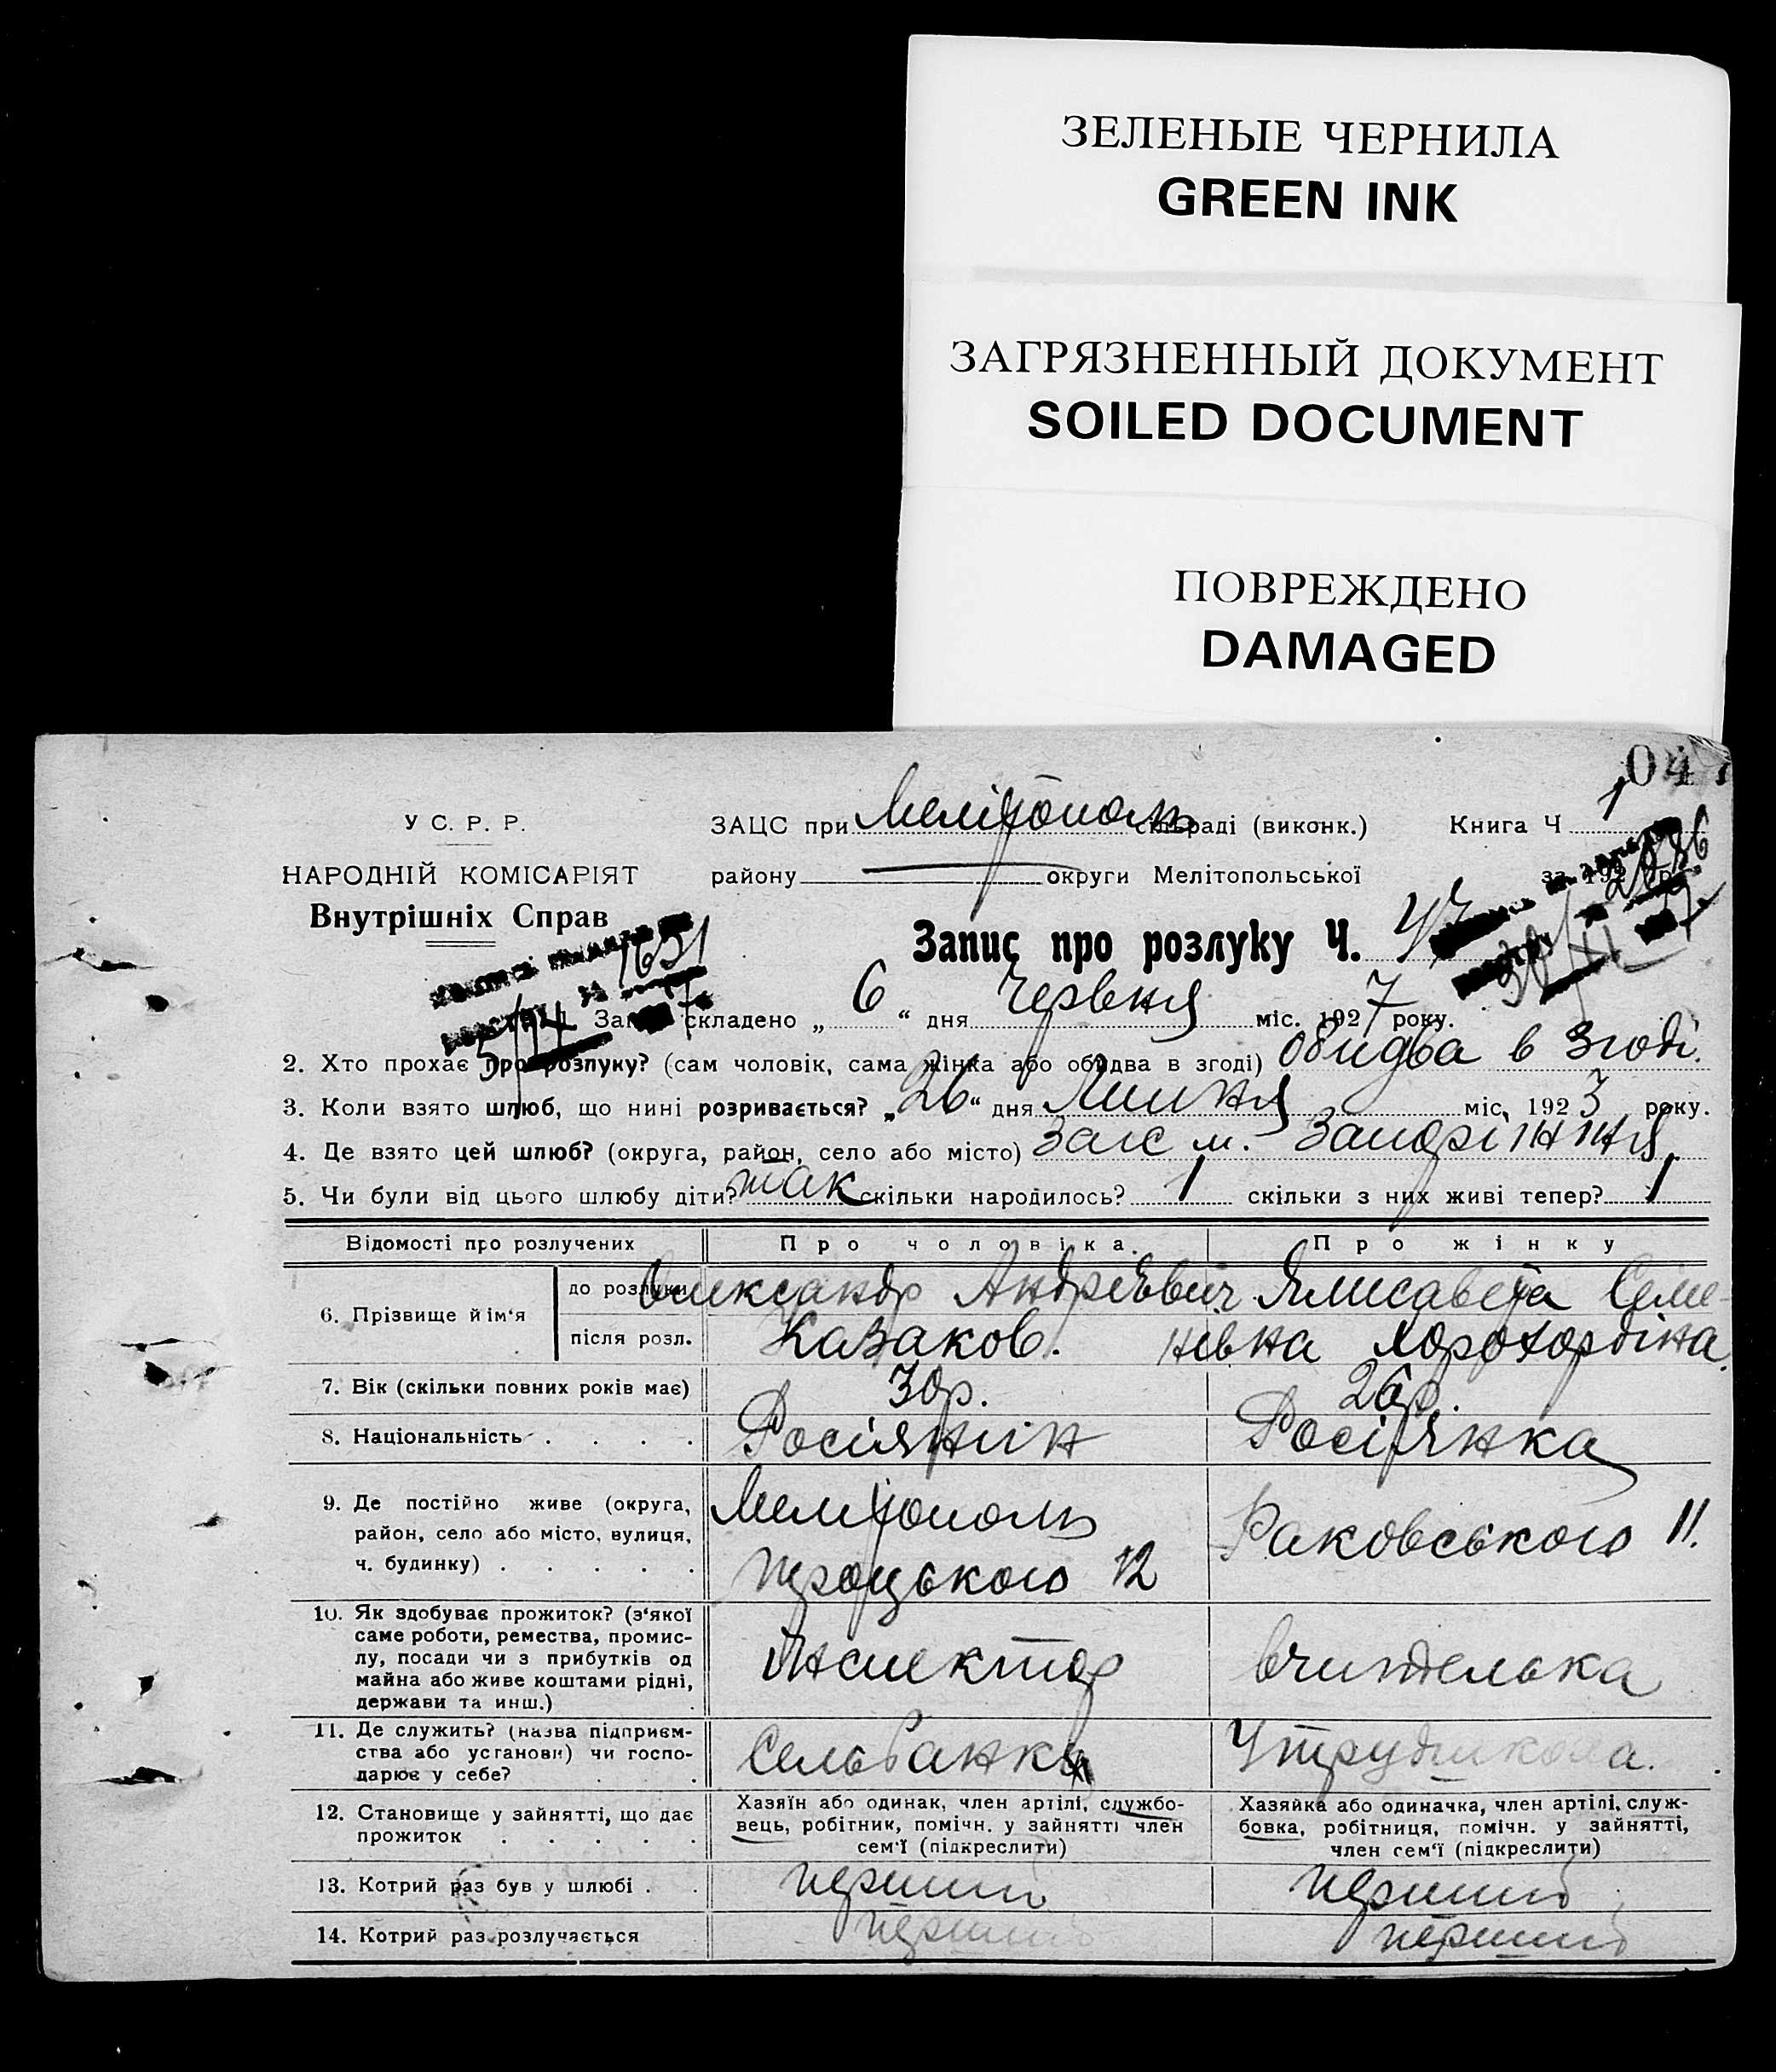 ЗЕЛЕНЫЕ ЧЕРНИЛА
GREEN INK
ЗАГРЯЗНЕННЫЙ ДОКУМЕНТ
SOILED DOCUMENT
ПОВРЕЖДЕНО
DAMAGED
04
У С. Р. Р.
НАРОДНІЙ КОМІСАРІЯТ
Внутрішніх Справ
ЗАЦС при Мелітополь раді (виконк.) Книга Ч 1
району округи Мелітопольської
Запис про розлуку Ч. 47
складено „ 6 “ дня Червня міс. 1927 року.
2. Хто прохає про розлуку? (сам чоловік, сама жінка або обидва в згоді) обидва в згоді.
3. Коли взято шлюб, що нині розривається? „ 26 “ дня Липня міс. 1923 року.
4. Де взято цей шлюб? (округа, район, село або місто) Загс м. Запоріжжя
5. Чи були від цього шлюбу діти? так скільки народилось? 1 скільки з них живі тепер? 1
Відомості про розлучених Про чоловіка. Про жінку
6. Прізвище й ім‘я до розлуки Олександр Андрієвич Єлисавета Семе-
після розл. Казаков. нівна Хорохордіна.
7. Вік (скільки повних років має) 30р. 26р.
8. Національність . . . . Росіянин Росіянка
9. Де постійно живе (округа, район, село або місто, вулиця, ч. будинку) . . . . .
Мелітополь
Троцького 12
Раковського 11.
10. Як здобуває прожиток? (з‘якої
саме роботи, ремества, промис-
лу, посади чи з прибутків од
майна або живе коштами рідні,
держави та инш.)
Інспектор вчителька
11. Де служить? (назва підприєм-
ства або установи) чи госпо-
дарює у себе?
Сельбанка Утрудшкола.
12. Становище у зайнятті, що дає
прожиток . . . . .
Хазяїн або одинак, член артілі, службо-
вець, робітник, помічн. у зайнятті член
сем‘ї (підкреслити)
Хазяйка або одиначка, член артілі, служ-
бовка, робітниця, помічн. у зайнятті,
член сем‘ї (підкреслити)
13. Котрий раз був у шлюбі . . перший перший
14. Котрий раз розлучається перший перший